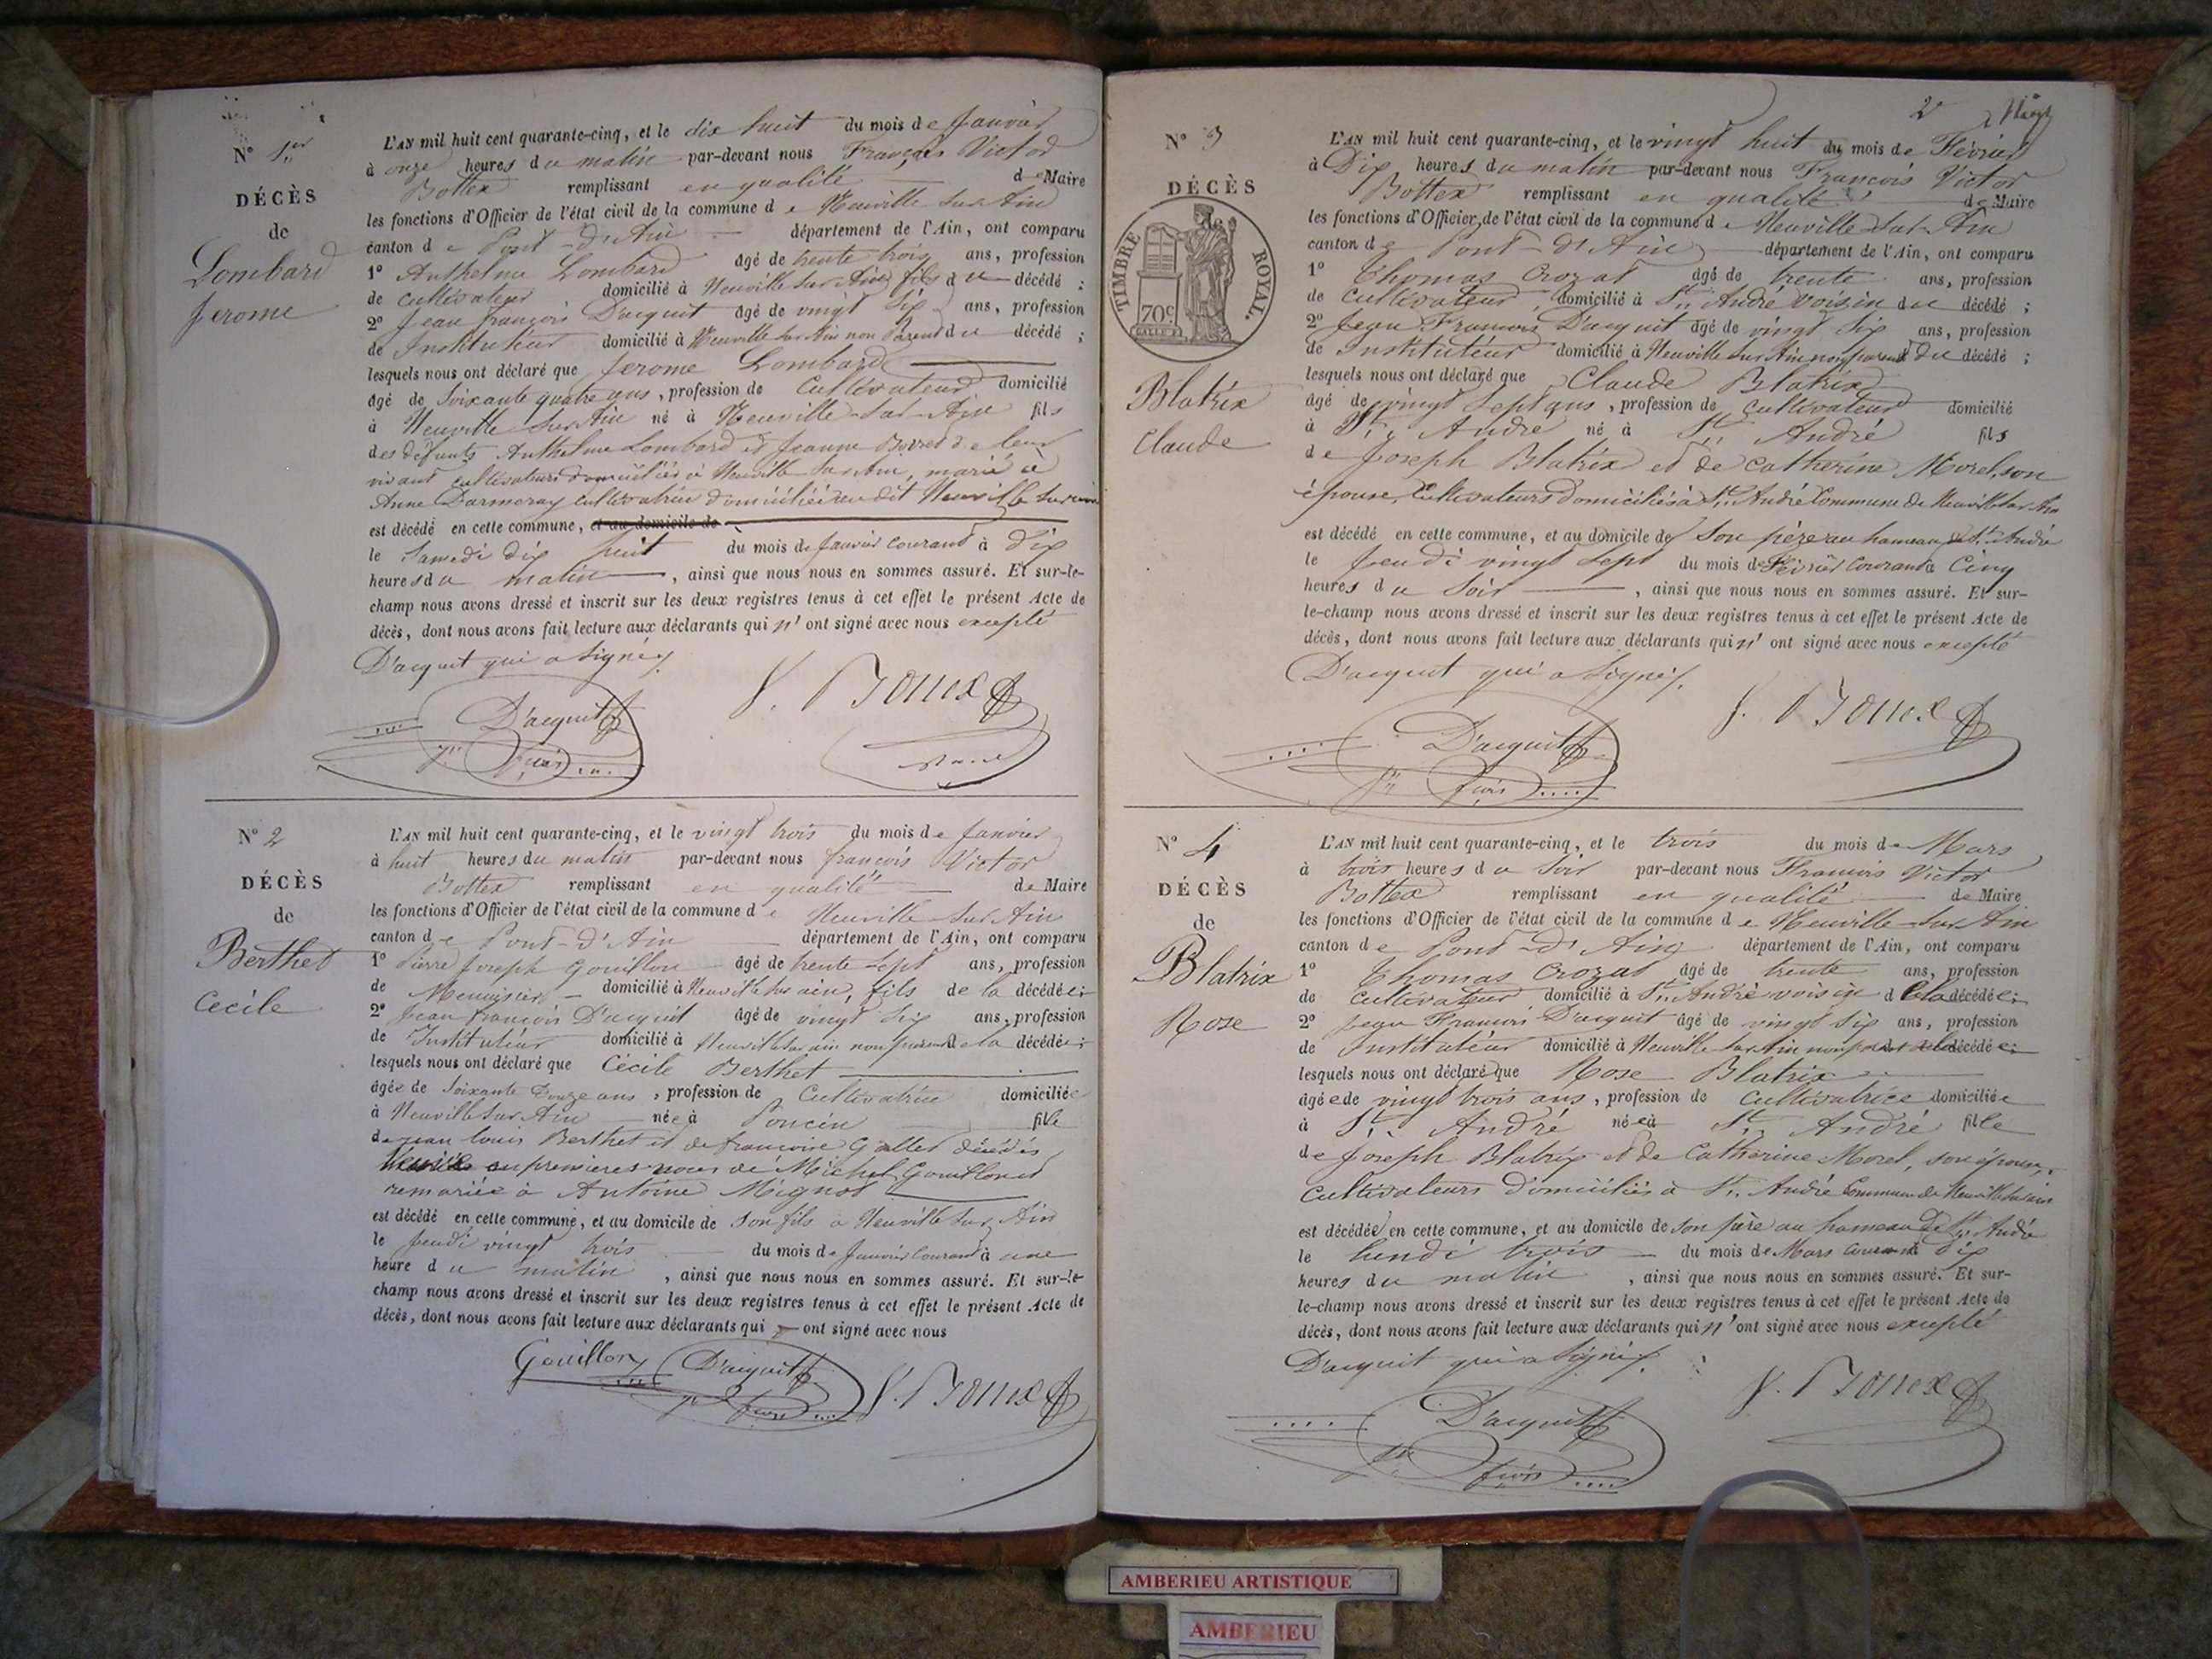 N° 1er
DÉCÈS
de
Lombard
Jerome
L'AN mil huit cent quarante-cinq, et le dix huit du mois de Janvier
à onze heures du matin par-devant nous François Victor
Bottex remplissant en qualité de Maire
les fonctions d'Officier de l'état civil de la commune de Neuville sur Ain
canton de Pont-d'Ain département de l'Ain, ont comparu
1° Anthelme Lombard âgé de trente trois ans, profession
de cultivateur domicilié à Neuville sur Ain fils du décédé ;
2° Jean françois D'acquit âgé de vingt six ans, profession
de Instituteur domicilié à Neuville sur Ain non Parent du décédé ;
lesquels nous ont déclaré que Jerome Lombard
âgé de soixante quatre ans, profession de Cultivateur domicilié
à Neuville sur Ain né à Neuville-sur-Ain fils
des défunts Anthelme Lombard et Jeanne de leur
vivant cultivateurs domiciliés à Neuville sur Ain, marié à
Anne Darmeray cultivatrice domiciliée au dit Neuville sur ain
est décédé en cette commune, et au domicile de
le Samedi dix huit du mois de Janvier courant à dix
heures du matin, ainsi que nous nous en sommes assuré. Et sur-le-
champ nous avons dressé et inscrit sur les deux registres tenus à cet effet le présent Acte de
décès, dont nous avons fait lecture aux déclarants qui n'ont signé avec nous excepté
D'acquit qui a signé.
D'acquit
jn fçois
f. Bottex
N° 2
DÉCÈS
de
Berthet
Cecile
L'AN mil huit cent quarante-cinq, et le vingt trois du mois de Janvier
à huit heures du matin par-devant nous françois Victor
Bottex remplissant en qualité de Maire
les fonctions d'Officier de l'état civil de la commune de Neuville-sur-Ain
canton de Pont-d'Ain département de l'Ain, ont comparu
1° Pierre Joseph Gouillon âgé de trente sept ans, profession
de Menuisier domicilié à Neuville sur ain, fils de la décédée ;
2° Jean françois D'acquit âgé de vingt six ans, profession
de Instituteur domicilié à Neuville sur ain non parent de la décédée ;
lesquels nous ont déclaré que Cécile Berthet
âgée de soixante douze ans, profession de Cultivatrice domiciliée
à Neuville sur Ain née à Poncin fille
de jean louis Berthet et de françoise Gallet décédés
Veuve en premieres noces de Michel Gouillon et
remariée à Antoine Mignot
est décédé en cette commune, et au domicile de son fils à Neuville sur Ain
le Jeudi vingt trois du mois de Janvier courant à une
heure du matin, ainsi que nous nous en sommes assuré. Et sur-le-
champ nous avons dressé et inscrit sur les deux registres tenus à cet effet le présent Acte de
décès, dont nous avons fait lecture aux déclarants qui ont signé avec nous
Gouillon D'acquit f. Bottex
jn fçois
2
N° 3
DÉCÈS
TIMBRE ROYAL.
70c
Blatrix
Claude
L'AN mil huit cent quarante-cinq, et le vingt huit du mois de Février
à Dix heures du matin par-devant nous François Victor
Bottex remplissant en qualité de Maire
les fonctions d'Officier de l'état civil de la commune de Neuville-sur-Ain
canton de Pont-d'Ain département de l'Ain, ont comparu
1° Thomas Crozat âgé de trente ans, profession
de Cultivateur domicilié à St. André voisin du décédé ;
2° Jean François D'acquit âgé de vingt six ans, profession
de Instituteur domicilié à Neuville sur Ain non parent du décédé ;
lesquels nous ont déclaré que Claude Blatrix
âgé de vingt sept ans, profession de cultivateur domicilié
à St. André né à St. André fils
de Joseph Blatrix et de catherine Morel, son
épouse, Cultivateurs domiciliés à St. André Commune de Neuville sur Ain
est décédé en cette commune, et au domicile de son père au hameau de St. André
le Jeudi vingt sept du mois de Février courant à Cinq
heures du soir, ainsi que nous nous en sommes assuré. Et sur-
le-champ nous avons dressé et inscrit sur les deux registres tenus à cet effet le présent Acte de
décès, dont nous avons fait lecture aux déclarants qui n'ont signé avec nous excepté
D'acquit qui a signé.
D'acquit
jn fçois
f. Bottex
N° 4
DÉCÈS
de
Blatrix
Rose
L'AN mil huit cent quarante-cinq, et le trois du mois de Mars
à trois heures du soir par-devant nous François Victor
Bottex remplissant en qualité de Maire
les fonctions d'Officier de l'état civil de la commune de Neuville-sur-Ain
canton de Pont-d'Ain département de l'Ain, ont comparu
1° Thomas Crozat âgé de trente ans, profession
de cultivateur domicilié à St. André voisin de la décédée ;
2° Jean François D'acquit âgé de vingt six ans, profession
de Instituteur domicilié à Neuville sur Ain non parent de la décédée ;
lesquels nous ont déclaré que Rose Blatrix
âgée de vingt trois ans, profession de cultivatrice domiciliée
à St. André née à St. André fille
de Joseph Blatrix et de Catherine Morel, son épouse,
cultivateurs domiciliés à St. André Commune de Neuville sur ain
est décédée en cette commune, et au domicile de son père au hameau de St. André
le lundi trois du mois de Mars courant à dix
heures du matin, ainsi que nous nous en sommes assuré. Et sur-
le-champ nous avons dressé et inscrit sur les deux registres tenus à cet effet le présent Acte de
décès, dont nous avons fait lecture aux déclarants qui n'ont signé avec nous excepté
D'acquit qui a signé.
D'acquit
jn fçois
f. Bottex
AMBERIEU ARTISTIQUE
AMBERIEU